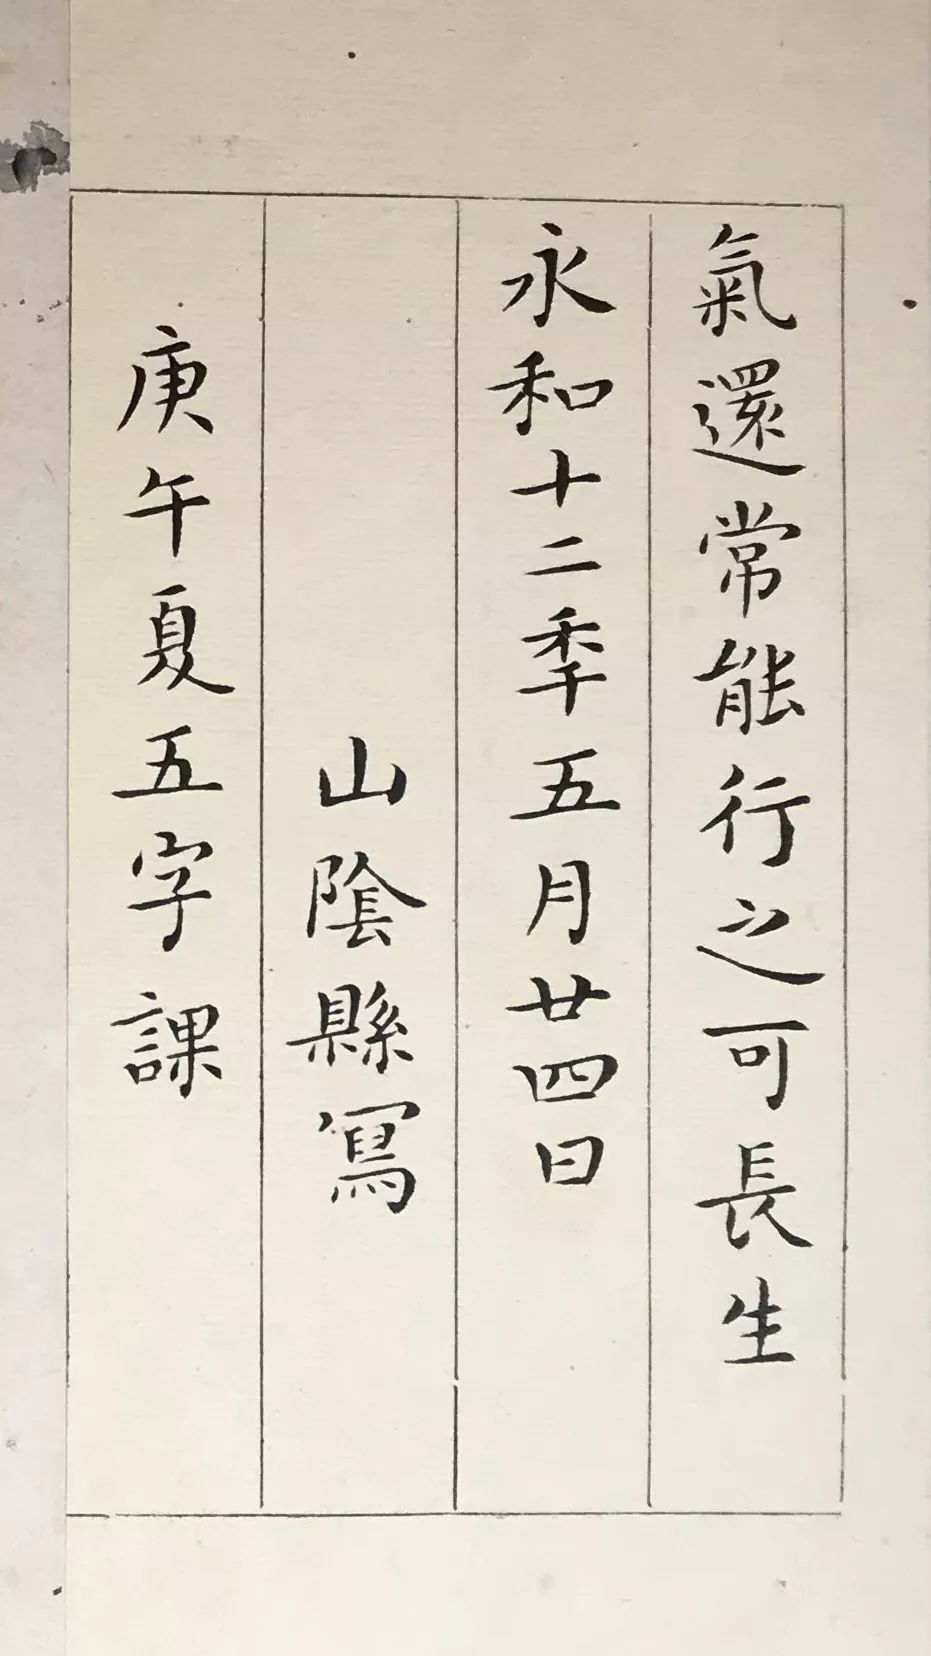 氣還常能行之可長生
永和十二秊五月廿四日
山陰縣寫
庚午夏五字課